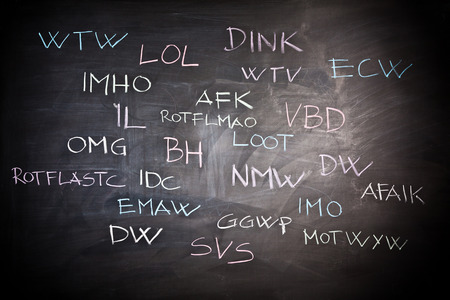 WTW LOL DINK
IMHO WTV ECW
AFK
IL ROTFLMAO VBD
OMG BH LOOT
ROTFLASTC IDC NMW DW
AFAIK
EMAW GGWP IMO
DW SVS MOTWYW